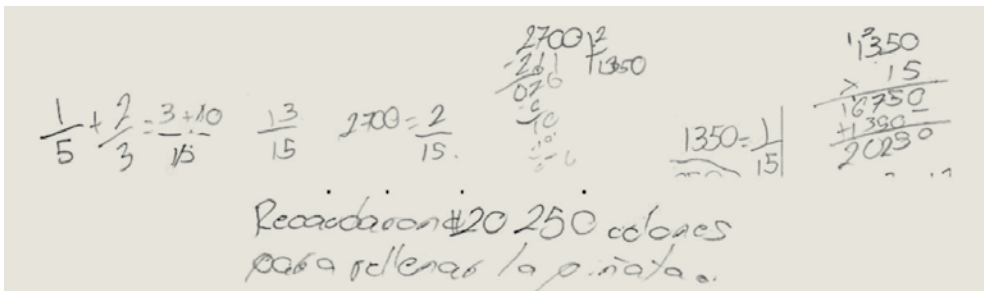 1/5 + 2/3 = 3+10/15 13/15 2700 = 2/15.
2700 2
1350
1350 = 1/15
1350
15
20250
Recaudaron ₡20 250 colones
para rellenar la piñata.